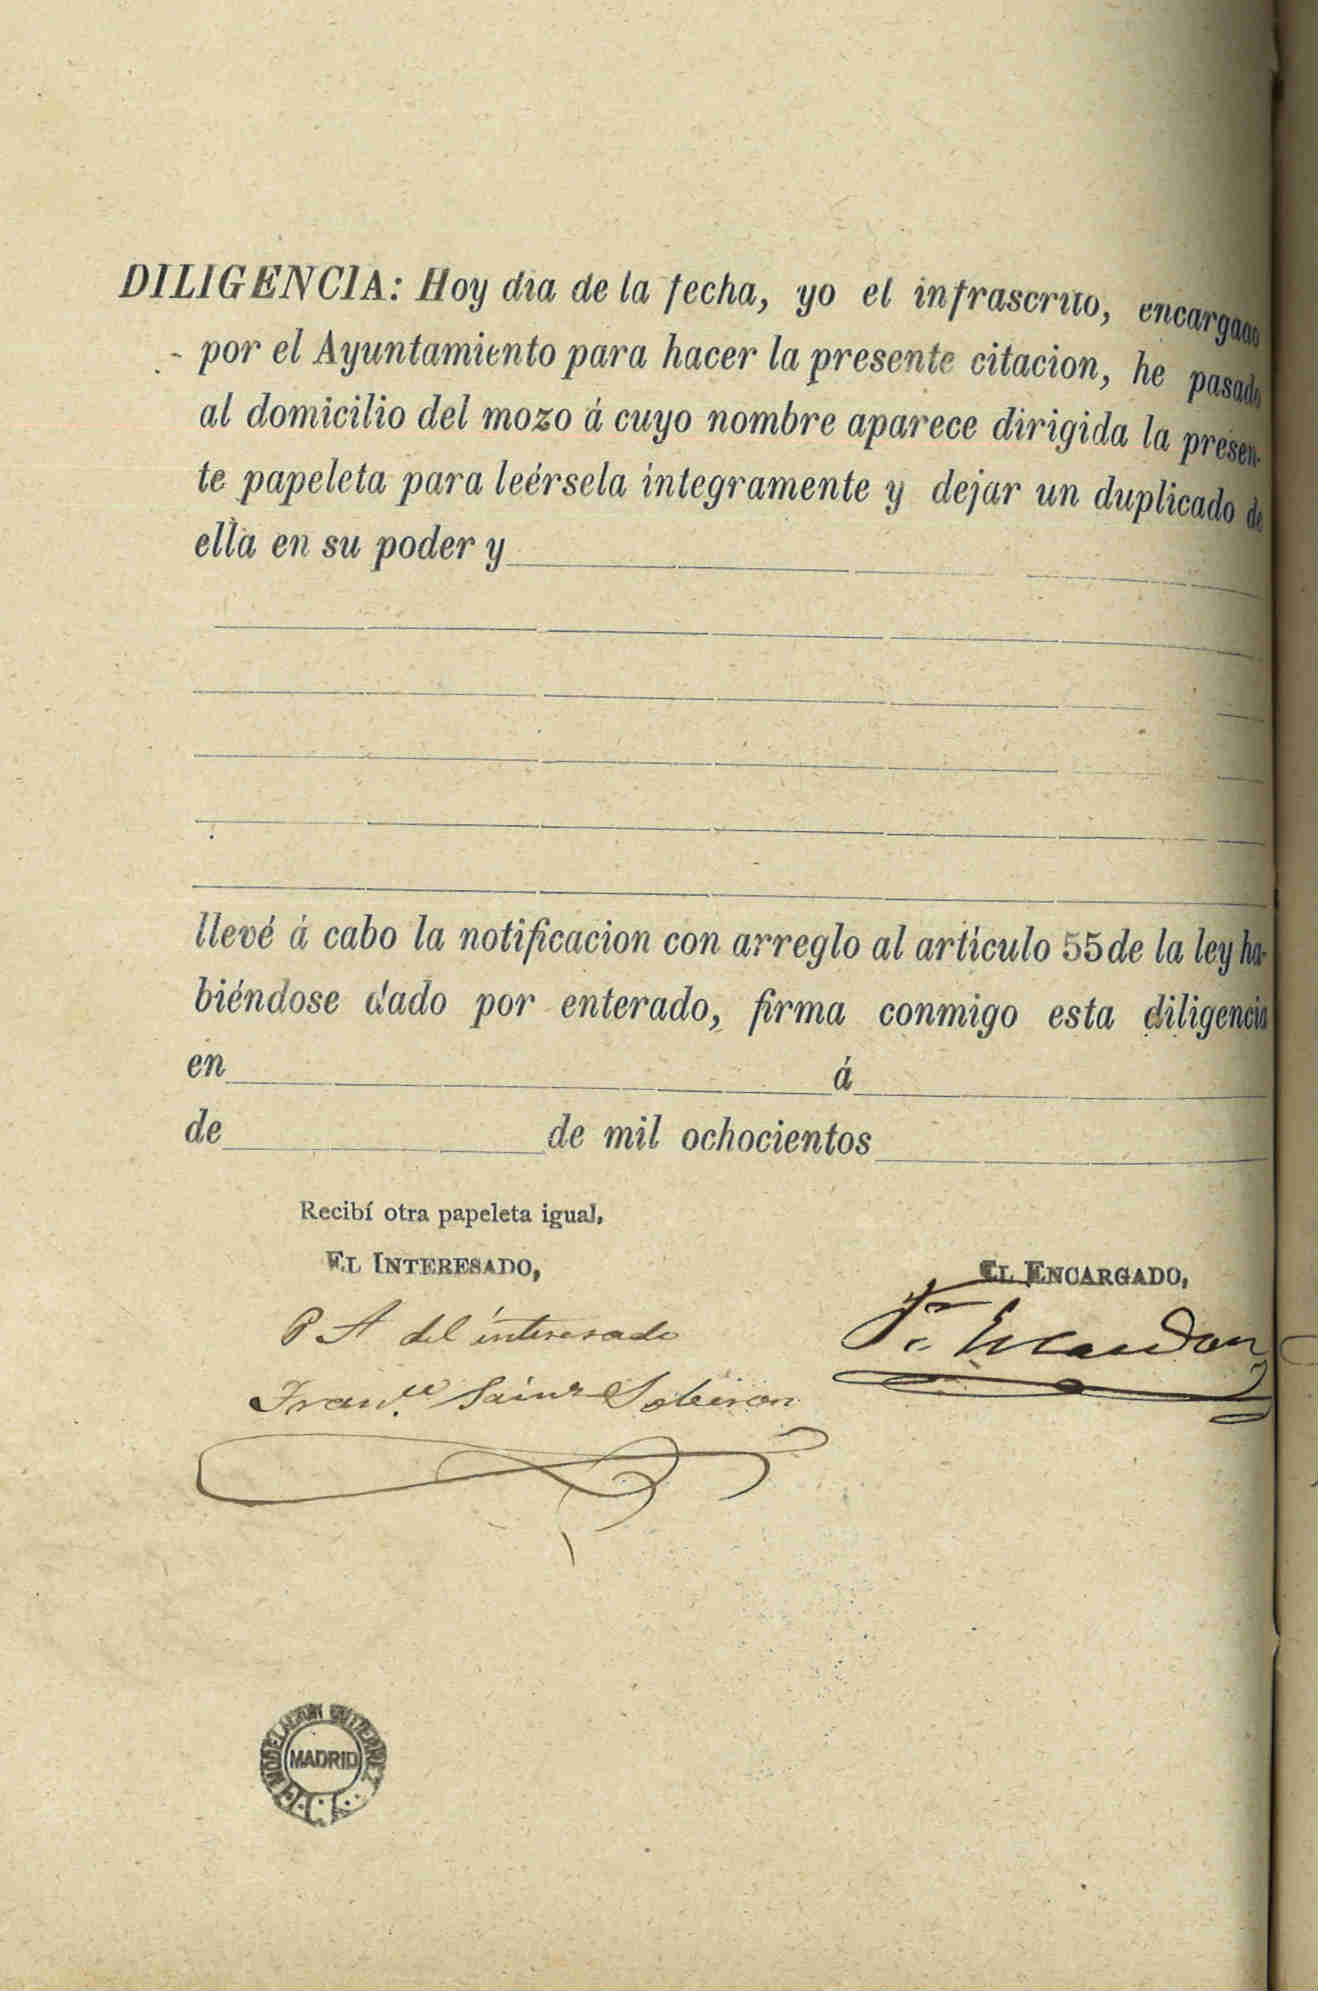 DILIGENCIA: Hoy dia de la fecha, yo el infrascrito, encargado
por el Ayuntamiento para hacer la presente citacion, he pasado
al domicilio del mozo á cuyo nombre aparece dirigida la presen-
te papeleta para leérsela integramente y dejar un duplicado de
ella en su poder y
llevé á cabo la notificacion con arreglo al artículo 55 de la ley ha-
biéndose dado por enterado, firma conmigo esta diligencia
en á
de de mil ochocientos
Recibí otra papeleta igual,
EL INTERESADO,
EL ENCARGADO,
P A del interesado
Franco Sainz Soberon
F. Escandon
MODELACION GUTIERREZ
MADRID